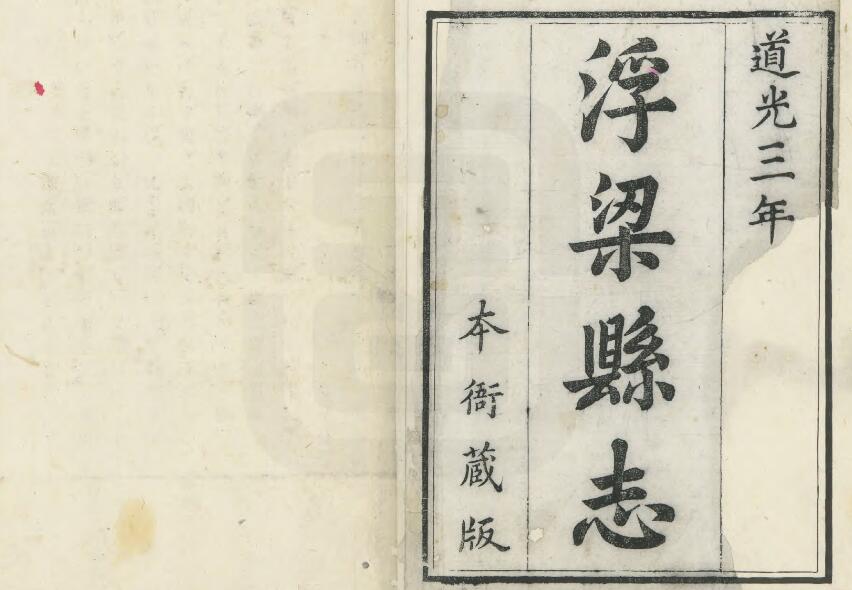 道光三年
浮梁縣志
本衙蔵版